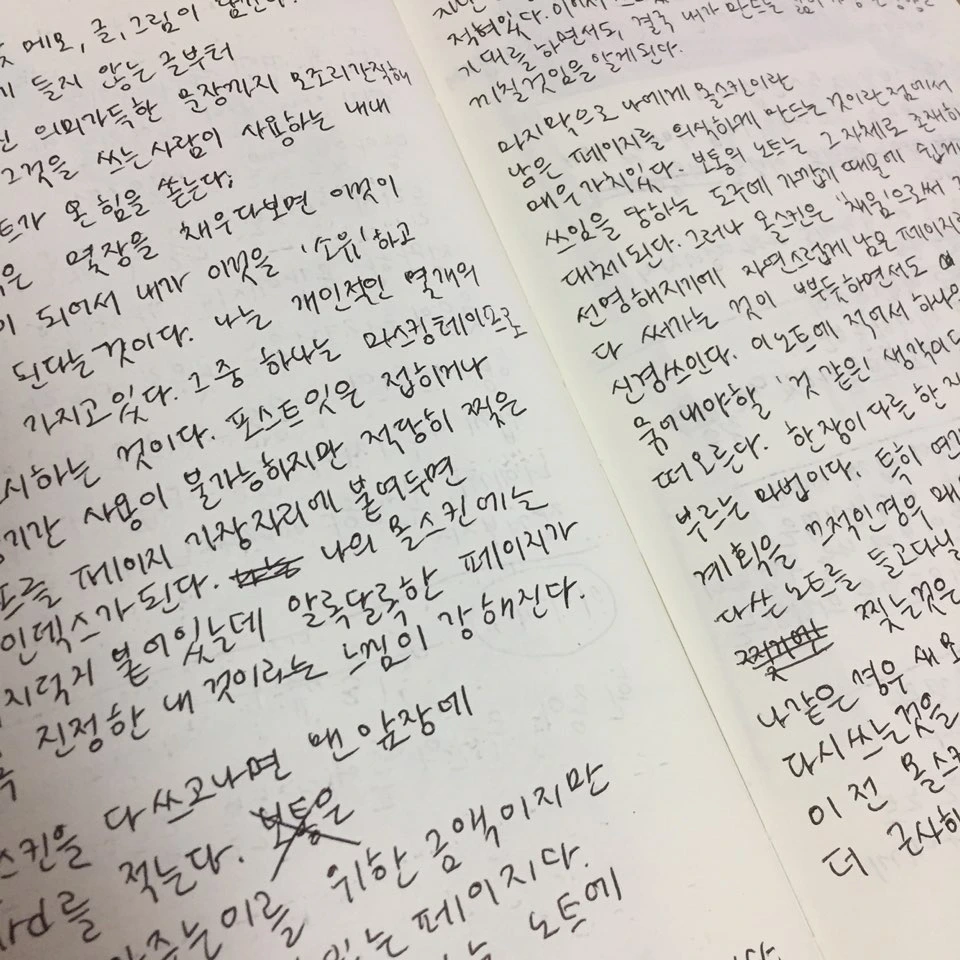 메모, 글, 그림이
들지 않는 글부터
의미가득한 문장까지 모조리간직해
그것을 쓰는사람이 사용하는 내내
온 힘을 쏟는다.
몇장을 채우다보면 이것이
되어서 내가 이것을 '소유'하고
된다는것이다. 나는 개인적인 몇개의
가지고있다. 그중 하나는 마스킹테이프로
것이다. 포스트잇은 접히거나
사용이 불가능하지만 적당히 찢은
페이지 가장자리에 붙여두면
인덱스가된다. 나의 몰스킨에는
붙어있는데 알록달록한 페이지가
진정한 내 것이라는 느낌이 강해진다.
다쓰고나면 맨앞장에
적는다. 보통은
위한 금액이지만
있는 페이지다.
노트에
적혀있다.
기대를 하면서도, 결국 내가 만드는
끼칠것임을 알게된다.
마지막으로 나에게 몰스킨이란
남은 페이지를 의식하게 만드는 것이란점에서
매우 가치있다. 보통의 노트는 그 자체로 존재하
쓰임을 당하는 도구에 가깝게 때문에 쉽게
대체된다. 그러나 몰스킨은 '채움'으로써
선명해지기에 자연스럽게 남은 페이지를
다 써가는 것이 뿌듯하면서도
신경쓰인다. 이노트에 적어서 하나의
묶어내야할 '것 같은' 생각이
떠오른다. 한장이 다른 한
부르는 마법이다. 특히
계획을 끄적인경우
다쓴 노트를 들고다닐
찢는것은
나같은 경우 새
다시쓰는것을
이전
더 근사